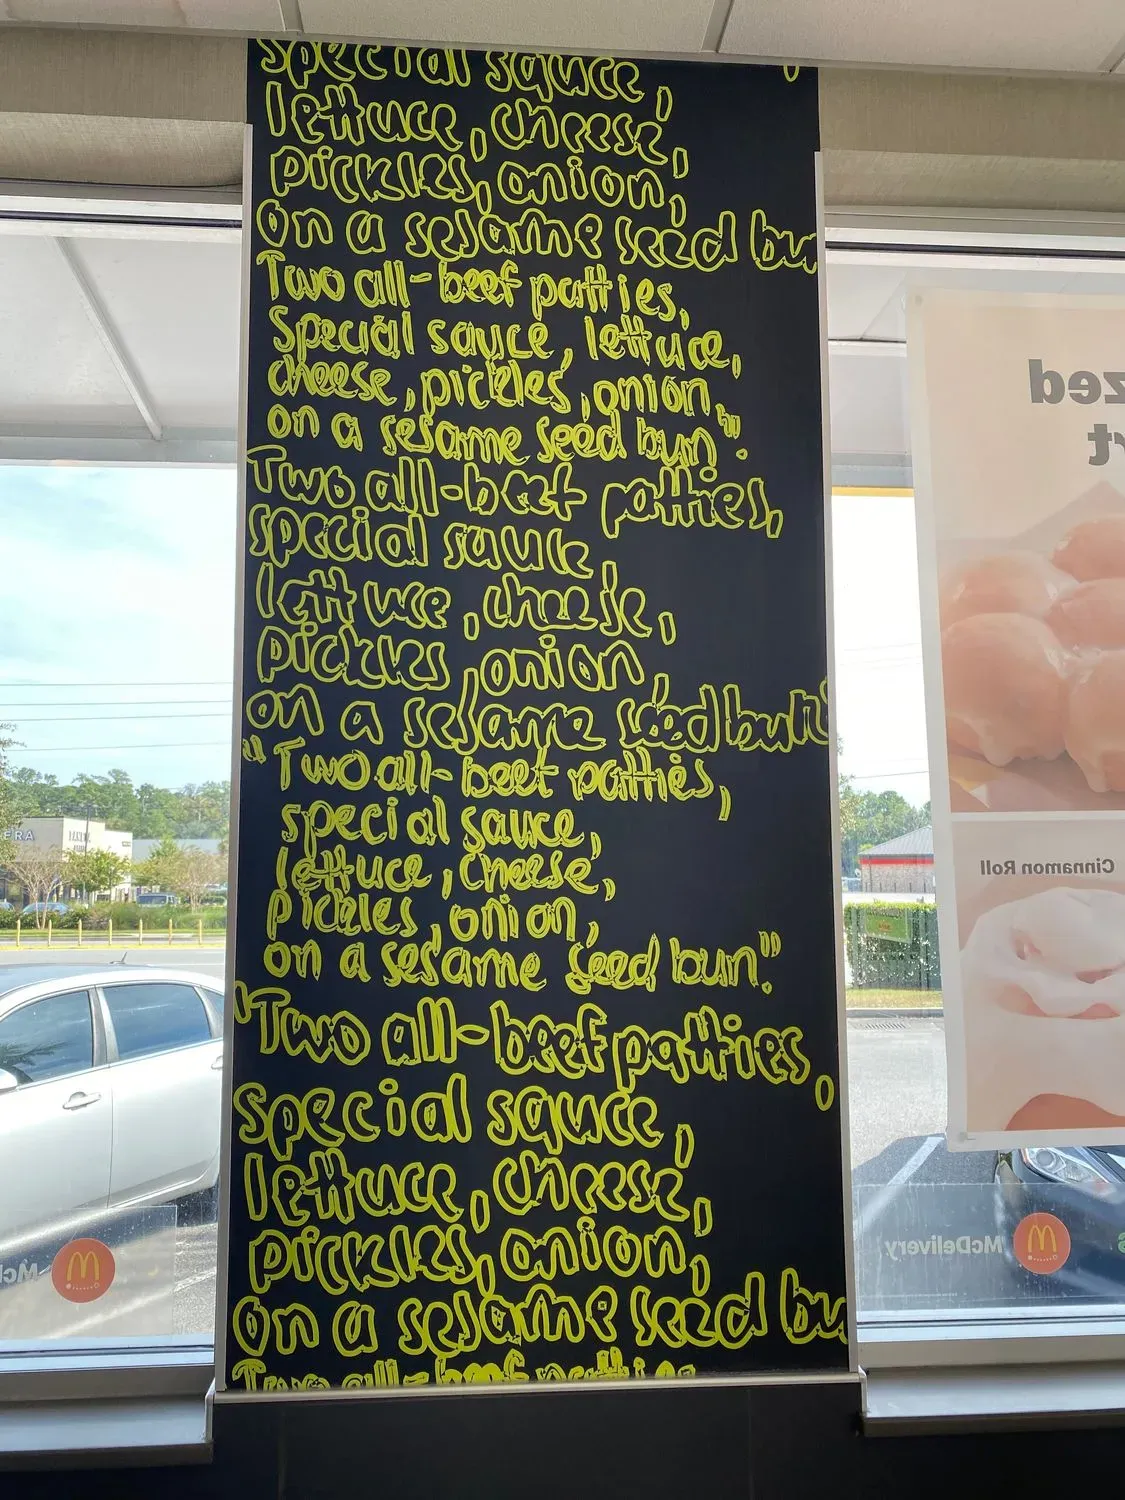 special sauce,
lettuce, cheese,
pickles, onion,
on a sesame seed bun
Two all-beef patties,
special sauce, lettuce,
cheese, pickles, onion,
on a sesame seed bun".
Two all-beef patties,
special sauce,
lettuce, cheese,
pickles, onion,
on a sesame seed bun"
"Two all-beef patties,
special sauce,
lettuce, cheese,
pickles, onion,
on a sesame seed bun".
"Two all-beef patties,
special sauce,
lettuce, cheese,
pickles, onion,
on a sesame seed bu
Two all-beef patties
zed
rt
Cinnamon Roll
McDelivery
McD
ERA